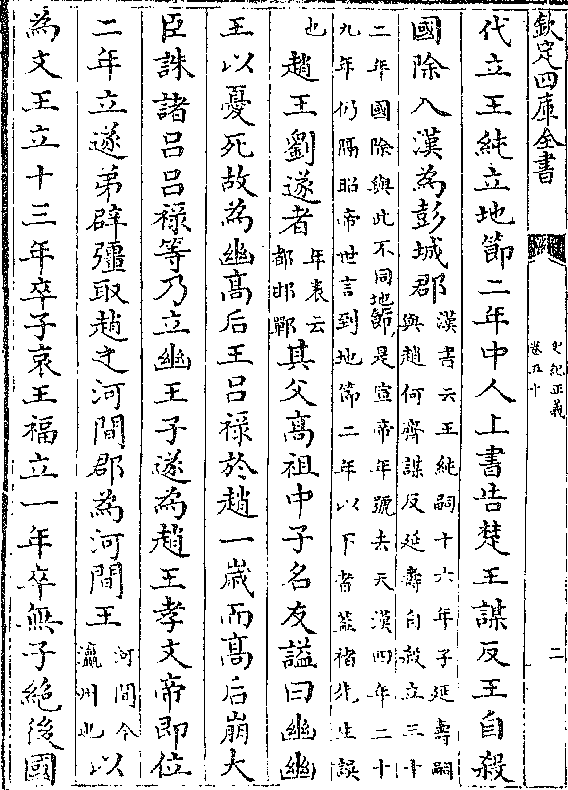 欽定四庫全書
史記正義
卷五十
二
代立王純立地節二年中人上書告楚王謀反王自殺
國除入漢為彭城郡
漢書云王純嗣十六年子延壽嗣
與趙何齊謀反延壽自殺立三十
二年國除與此不同地節是宣帝年號去天漢四年二十
九年仍隔昭帝世言到地節二年以下者蓋褚先生誤
也
趙王劉遂者
年表云
都邯鄲
其父高祖中子名友諡曰幽幽
王以憂死故為幽高后王呂祿於趙一歲而高后崩大
臣誅諸呂呂祿等乃立幽王子遂為趙王孝文帝即位
二年立遂弟辟彊取趙之河間郡為河間王
河間今
瀛州也
以
為文王立十三年卒子哀王福立一年卒無子絕後國